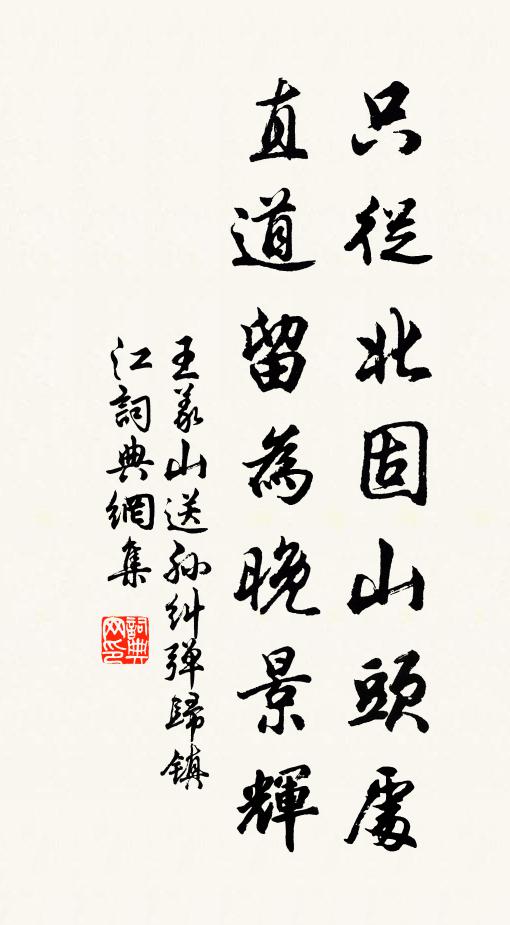 只從北固山頭處
直道留為晚景輝
王義山送孫糾彈歸鎮
江詞典網集
詞典
网印